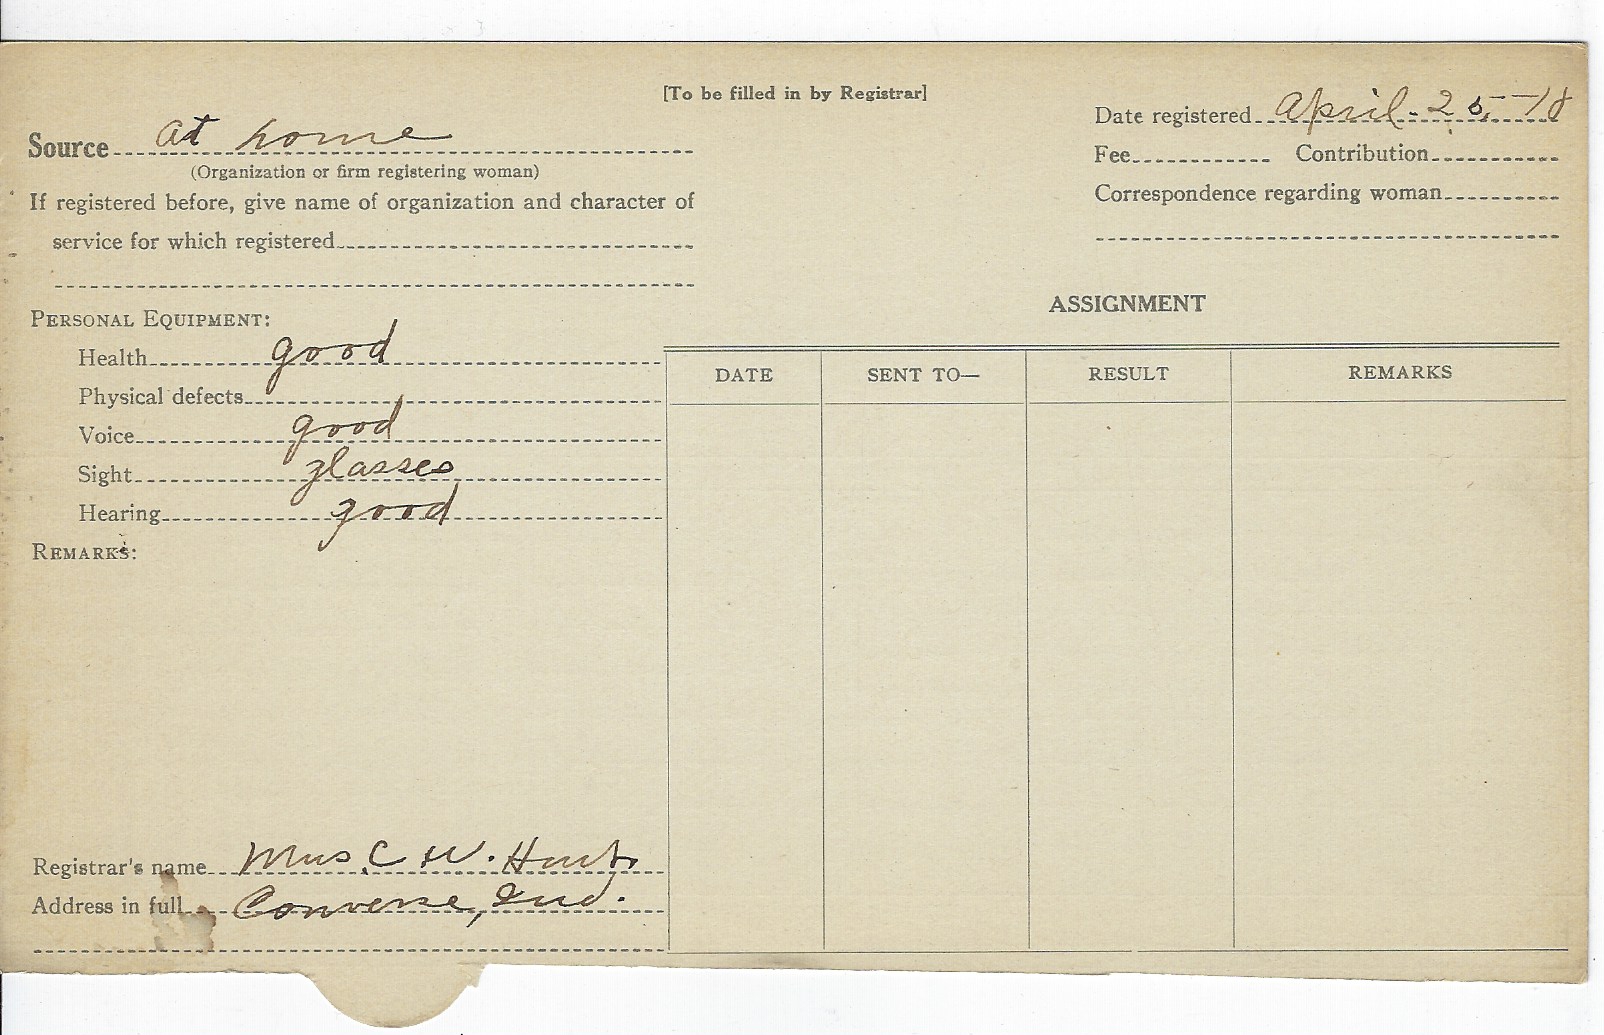 [To be filled in by Registrar]
Date registered April. 25, -18
Source at home
(Organization or firm registering woman)
Fee Contribution
If registered before, give name of organization and character of
service for which registered
Correspondence regarding woman
ASSIGNMENT
PERSONAL EQUIPMENT:
Health good
Physical defects
Voice good
Sight glasses
Hearing good
REMARKS:
DATE SENT TO— RESULT REMARKS
Registrar's name Mrs C W.
Address in full Converse, Ind.